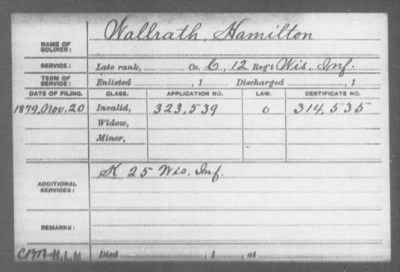 Wallrath, Hamilton
NAME OF SOLDIER:
SERVICE: Late rank, Co. C, 12 Reg't Wis. Inf.
TERM OF SERVICE: Enlisted , 1 Discharged , 1
DATE OF FILING. CLASS. APPLICATION NO. LAW. CERTIFICATE NO.
1879, Nov. 20 Invalid, 323,539 0 314,535
Widow,
Minor,
ADDITIONAL SERVICES: K 25 Wis. Inf.
REMARKS:
Died , 1 , at